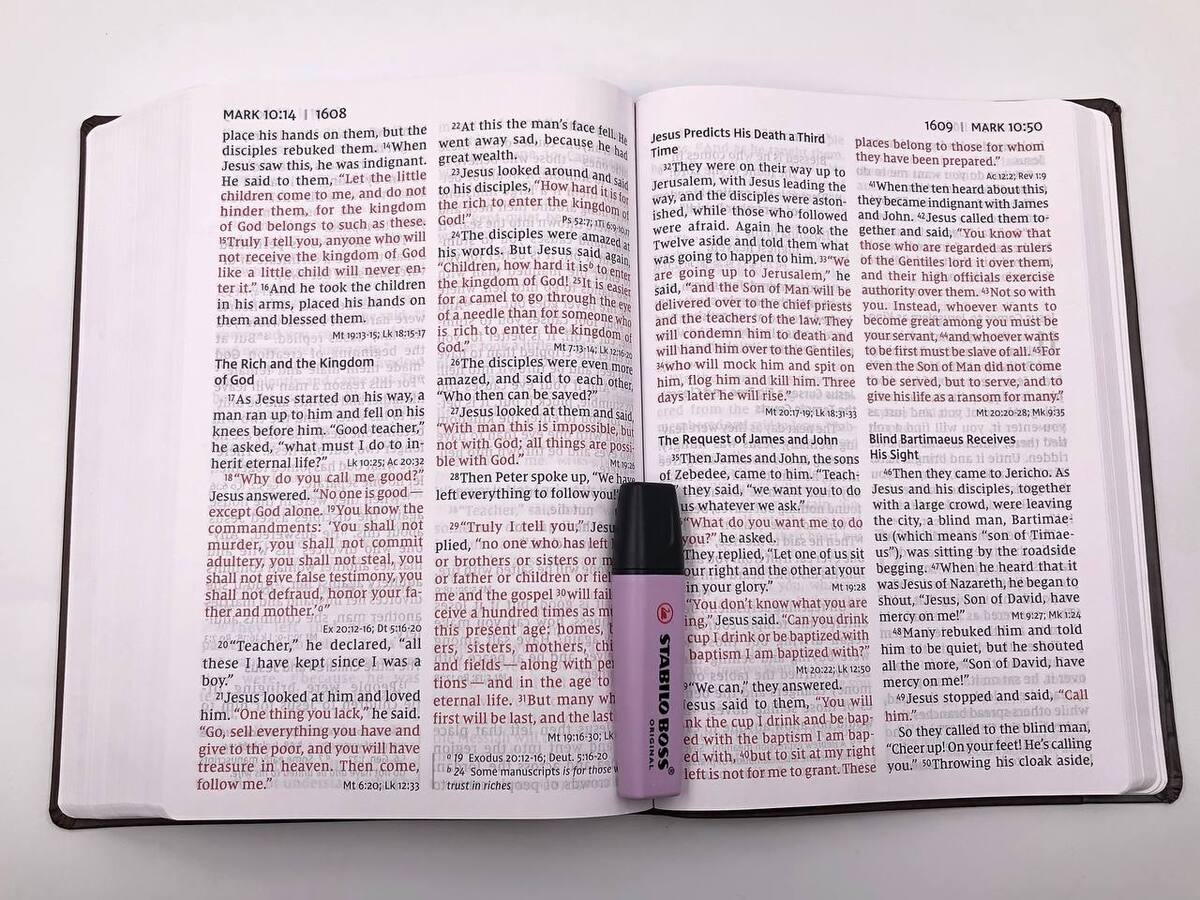 MARK 10:14 | 1608
place his hands on them, but the
disciples rebuked them. 14When
Jesus saw this, he was indignant.
He said to them, “Let the little
children come to me, and do not
hinder them, for the kingdom
of God belongs to such as these.
15Truly I tell you, anyone who will
not receive the kingdom of God
like a little child will never en-
ter it.” 16And he took the children
in his arms, placed his hands on
them and blessed them.
Mt 19:13-15; Lk 18:15-17
The Rich and the Kingdom
of God
17As Jesus started on his way, a
man ran up to him and fell on his
knees before him. “Good teacher,”
he asked, “what must I do to in-
herit eternal life?” Lk 10:25; Ac 20:32
18“Why do you call me good?”
Jesus answered. “No one is good—
except God alone. 19You know the
commandments: ‘You shall not
murder, you shall not commit
adultery, you shall not steal, you
shall not give false testimony, you
shall not defraud, honor your fa-
ther and mother.’a”
Ex 20:12-16; Dt 5:16-20
20“Teacher,” he declared, “all
these I have kept since I was a
boy.”
21Jesus looked at him and loved
him. “One thing you lack,” he said.
“Go, sell everything you have and
give to the poor, and you will have
treasure in heaven. Then come,
follow me.” Mt 6:20; Lk 12:33
22At this the man’s face fell. He
went away sad, because he had
great wealth.
23Jesus looked around and said
to his disciples, “How hard it is for
the rich to enter the kingdom of
God!” Ps 52:7; 1Ti 6:9-10,17
24The disciples were amazed at
his words. But Jesus said again,
“Children, how hard it isb to enter
the kingdom of God! 25It is easier
for a camel to go through the eye
of a needle than for someone who
is rich to enter the kingdom of
God.” Mt 7:13-14; Lk 12:16-20
26The disciples were even more
amazed, and said to each other,
“Who then can be saved?”
27Jesus looked at them and said,
“With man this is impossible, but
not with God; all things are possi-
ble with God.” Mt 19:26
28Then Peter spoke up, “We have
left everything to follow you!”
29“Truly I tell you,”
plied, “no one who has left
or brothers or sisters or
or father or children or
me and the gospel 30will
ceive a hundred times as
this present age: homes,
ers, sisters, mothers,
and fields—along with
tions—and in the age to
eternal life. 31But many
first will be last, and the last
Mt 19:16-30;
a 19 Exodus 20:12-16; Deut. 5:16-20
b 24 Some manuscripts is for those
trust in riches
STABILO BOSS®
ORIGINAL
1609 | MARK 10:50
Jesus Predicts His Death a Third
Time
32They were on their way up to
Jerusalem, with Jesus leading the
way, and the disciples were aston-
ished, while those who followed
were afraid. Again he took the
Twelve aside and told them what
was going to happen to him. 33“We
are going up to Jerusalem,” he
said, “and the Son of Man will be
delivered over to the chief priests
and the teachers of the law. They
will condemn him to death and
will hand him over to the Gentiles,
34who will mock him and spit on
him, flog him and kill him. Three
days later he will rise.”
Mt 20:17-19; Lk 18:31-33
The Request of James and John
35Then James and John, the sons
of Zebedee, came to him. “Teach-
they said, “we want you to do
us whatever we ask.”
“What do you want me to do
you?” he asked.
They replied, “Let one of us sit
your right and the other at your
in your glory.” Mt 19:28
“You don’t know what you are
Jesus said. “Can you drink
cup I drink or be baptized with
baptism I am baptized with?”
Mt 20:22; Lk 12:50
“We can,” they answered.
said to them, “You will
the cup I drink and be bap-
with the baptism I am bap-
40but to sit at my right
left is not for me to grant. These
places belong to those for whom
they have been prepared.”
Ac 12:2; Rev 1:9
41When the ten heard about this,
they became indignant with James
and John. 42Jesus called them to-
gether and said, “You know that
those who are regarded as rulers
of the Gentiles lord it over them,
and their high officials exercise
authority over them. 43Not so with
you. Instead, whoever wants to
become great among you must be
your servant, 44and whoever wants
to be first must be slave of all. 45For
even the Son of Man did not come
to be served, but to serve, and to
give his life as a ransom for many.”
Mt 20:20-28; Mk 9:35
Blind Bartimaeus Receives
His Sight
46Then they came to Jericho. As
Jesus and his disciples, together
with a large crowd, were leaving
the city, a blind man, Bartimae-
us (which means “son of Timae-
us”), was sitting by the roadside
begging. 47When he heard that it
was Jesus of Nazareth, he began to
shout, “Jesus, Son of David, have
mercy on me!” Mt 9:27; Mk 1:24
48Many rebuked him and told
him to be quiet, but he shouted
all the more, “Son of David, have
mercy on me!”
49Jesus stopped and said, “Call
him.”
So they called to the blind man,
“Cheer up! On your feet! He’s calling
you.” 50Throwing his cloak aside,